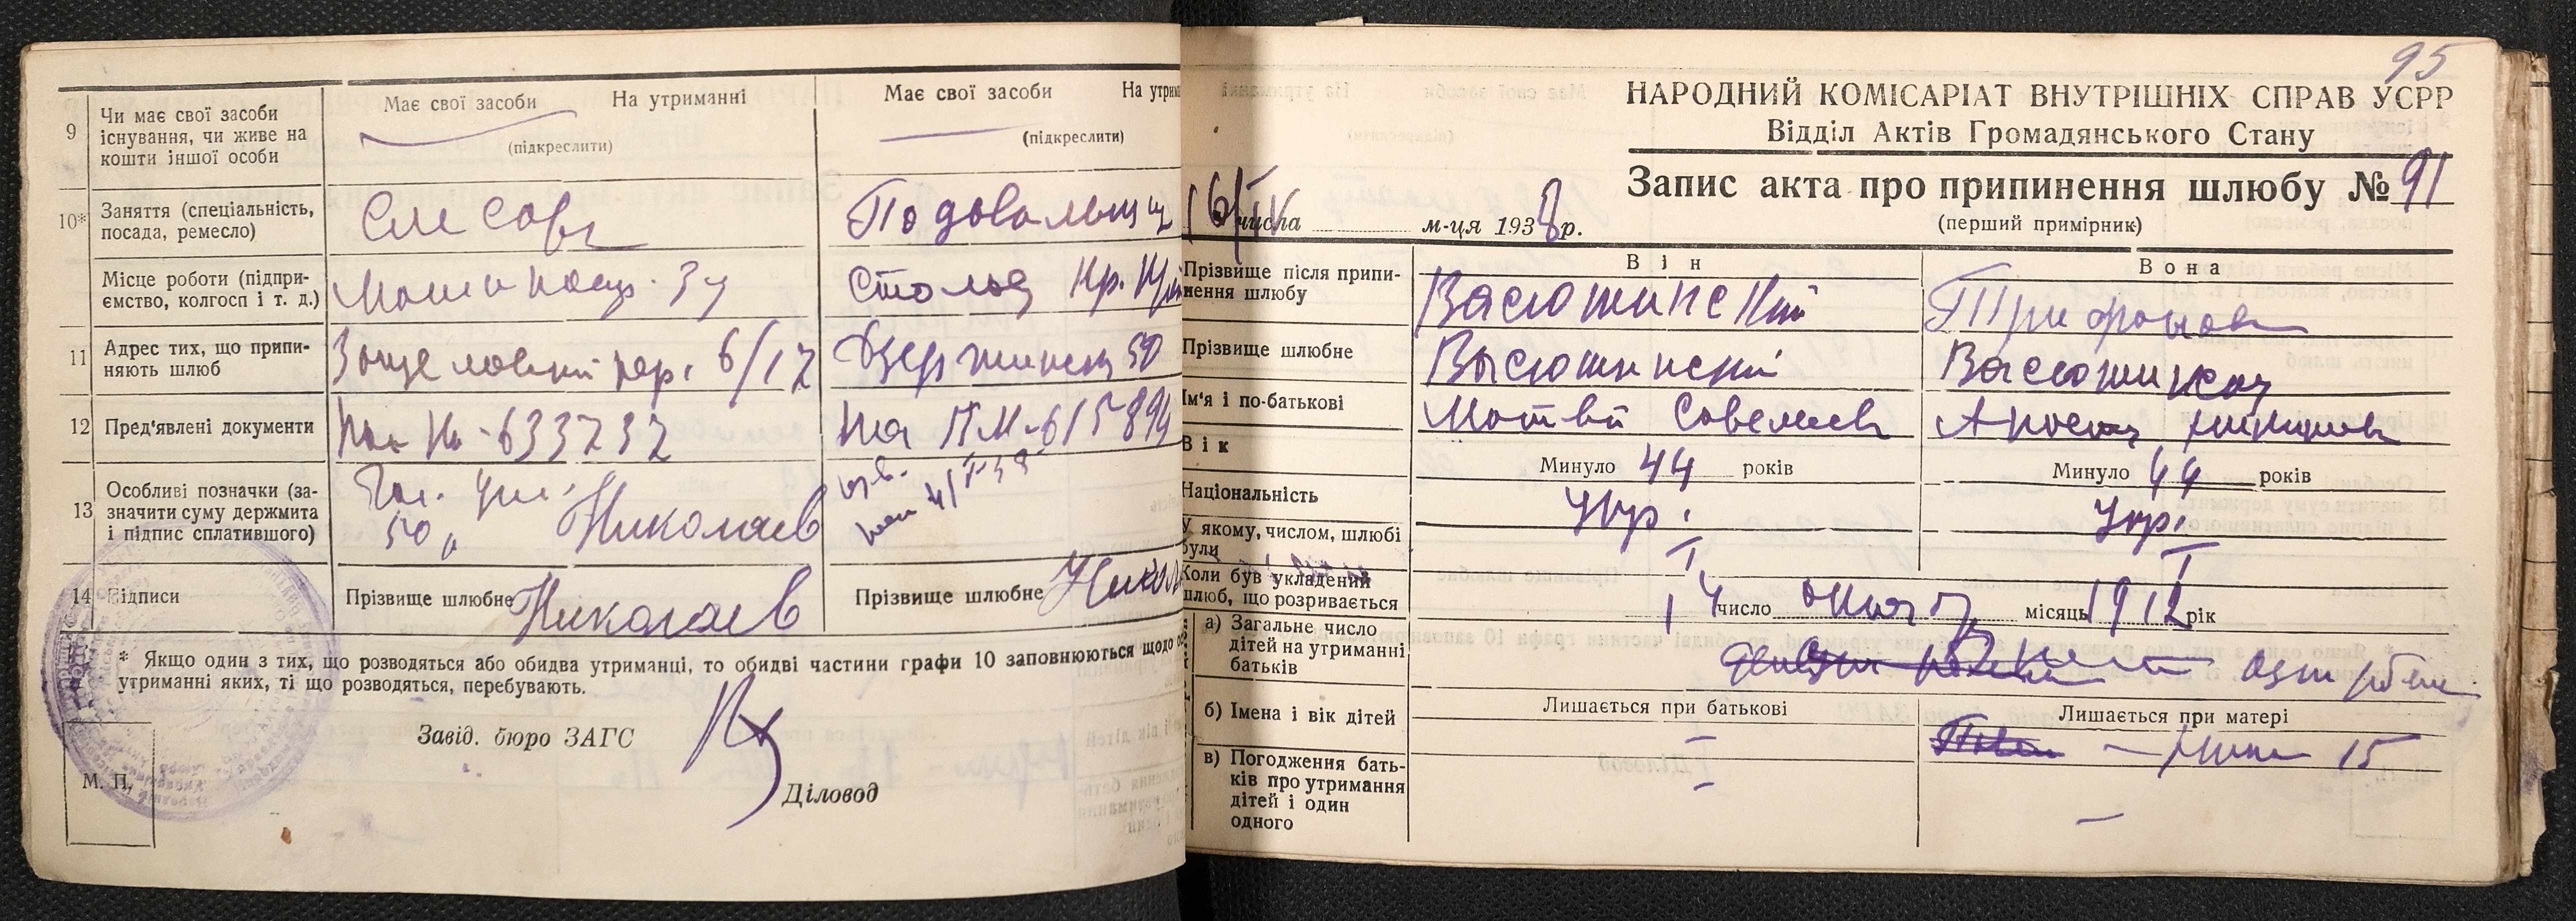 9
Чи має свої засоби
існування, чи живе на
кошти іншої особи
Має свої засоби На утриманні
(підкреслити)
Має свої засоби На утрим
(підкреслити)
10*
Заняття (спеціальність,
посада, ремесло)
Слесарь
Подавальщиц
Місце роботи (підпри-
ємство, колгосп і т. д.)
11
Адрес тих, що припи-
няють шлюб
пер. 6/17
Дзержинск 50
12
Пред'явлені документи
633737
615894
13
Особливі позначки (за-
значити суму держмита
і підпис сплатившого)
50
Николаев
14
Підписи
Прізвище шлюбне Николаев
Прізвище шлюбне Никол
* Якщо один з тих, що розводяться або обидва утриманці, то обидві частини графи 10 заповнюються щодо о
утриманні яких, ті що розводяться, перебувають.
Завід. бюро ЗАГС
М. П.
Діловод
95
НАРОДНИЙ КОМІСАРІАТ ВНУТРІШНІХ СПРАВ УСРР
Відділ Актів Громадянського Стану
Запис акта про припинення шлюбу № 91
(перший примірник)
16/IV числа м-ця 1938 р.
Він
Вона
Прізвище після припи-
нення шлюбу
Васюшинский
Трифонова
Прізвище шлюбне
Васюшинский
Ім'я і по-батькові
Матвій Савелиев
Вік
Минуло 44 років
Минуло 44 років
Національність
Укр.
Укр.
У якому, числом, шлюбі
були
I
I
Коли був укладений
шлюб, що розривається
14 число місяць 1912 рік
а) Загальне число
дітей на утриманні
батьків
б) Імена і вік дітей
Лишається при батькові
Лишається при матері
15
в) Погодження бать-
ків про утримання
дітей і один
одного